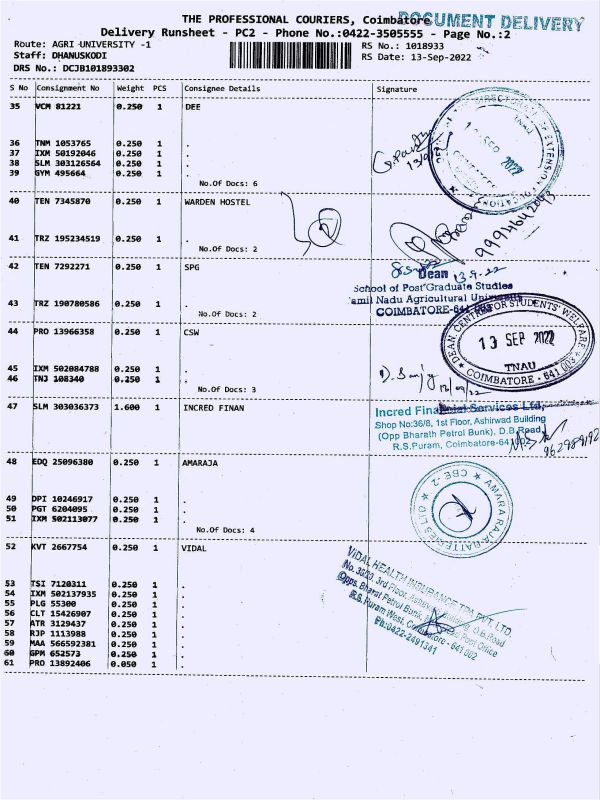 THE PROFESSIONAL COURIERS, Coimbatore
DOCUMENT DELIVERY
Delivery Runsheet - PC2 - Phone No.:0422-3505555 - Page No.:2
Route: AGRI UNIVERSITY -1
RS No.: 1018933
Staff: DHANUSKODI
RS Date: 13-Sep-2022
DRS No.: DCJB101893302
S No Consignment No Weight PCS Consignee Details Signature
35 VCM 81221 0.250 1 DEE
36 TNM 1053765 0.250 1 .
37 IXM 50192046 0.250 1 .
38 SLM 303126564 0.250 1 .
39 GYM 495664 0.250 1 .
No.Of Docs: 6
40 TEN 7345870 0.250 1 WARDEN HOSTEL
41 TRZ 195234519 0.250 1 .
No.Of Docs: 2
42 TEN 7292271 0.250 1 SPG
Dean 13-9-22
School of Post Graduate Studies
Tamil Nadu Agricultural University
COIMBATORE-641
43 TRZ 190780586 0.250 1 .
No.Of Docs: 2
44 PRO 13966358 0.250 1 CSW
DEAN CENTRE FOR STUDENTS' WELFARE
13 SEP 2022
TNAU
COIMBATORE - 641 003
45 IXM 502084788 0.250 1 .
46 TNJ 108340 0.250 1 .
No.Of Docs: 3
47 SLM 303036373 1.600 1 INCRED FINAN
Incred Financial Services Ltd,
Shop No:36/8, 1st Floor, Ashirwad Building
(Opp Bharath Petrol Bunk), D.B.Road,
R.S.Puram, Coimbatore-641002
48 EDQ 25096380 0.250 1 AMARAJA
AMARA RAJA BATTERIES LTD
CBE-2
49 DPI 10246917 0.250 1 .
50 PGT 6204095 0.250 1 .
51 IXM 502113077 0.250 1 .
No.Of Docs: 4
52 KVT 2667754 0.250 1 VIDAL
VIDAL HEALTH INSURANCE TPA PVT. LTD.
No. 36/20, 3rd Floor, Ashirwad Building, D.B.Road
Opps. Bharat Petrol Bunk, Post Office
R.S. Puram West, Coimbatore - 641 002
Ph:0422-2491341
53 TSI 7120311 0.250 1 .
54 IXM 502137935 0.250 1 .
55 PLG 55300 0.250 1 .
56 CLT 15426907 0.250 1 .
57 ATR 3129437 0.250 1 .
58 RJP 1113988 0.250 1 .
59 MAA 566592381 0.250 1 .
60 GPM 652573 0.250 1 .
61 PRO 13892406 0.050 1 .